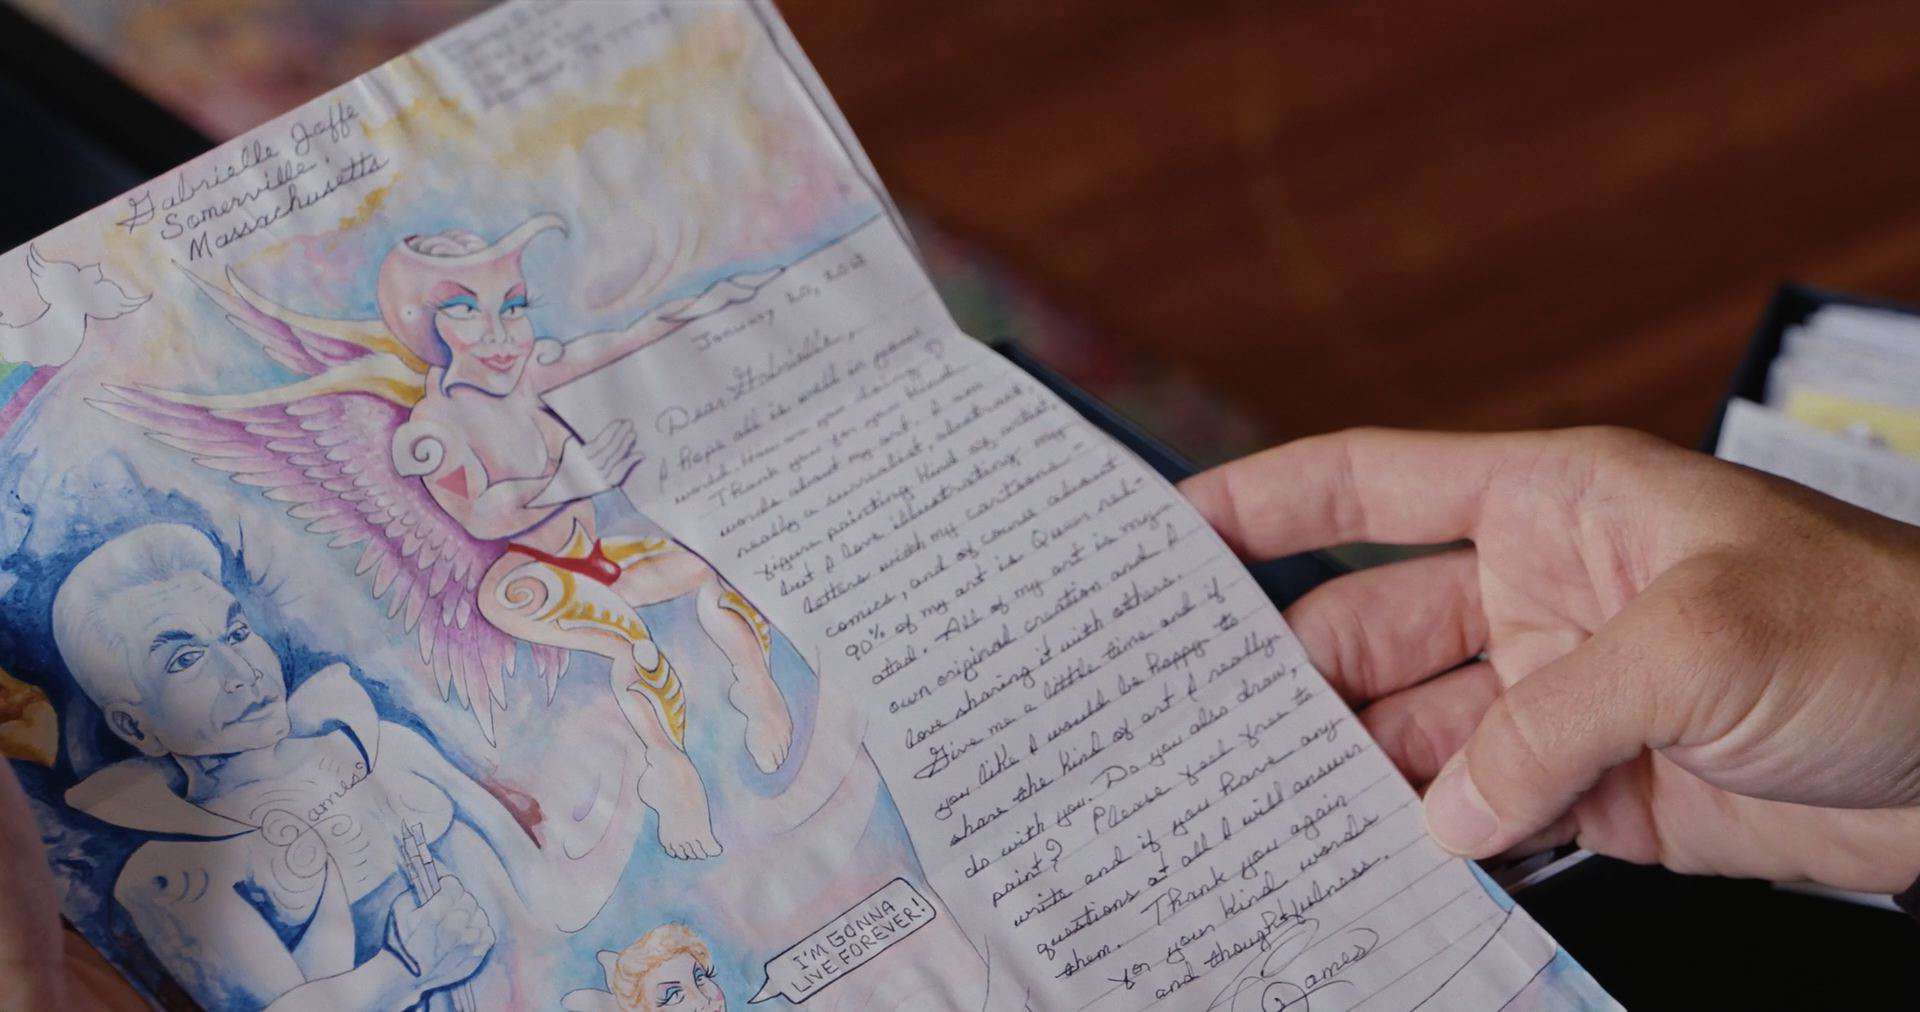 Gabrielle Jaffe
Somerville,
Massachusetts
January 20,
Dear Gabrielle,
I hope all is well in your
world. How are you doing?
Thank you for your kind
words about my art. I am
really a surrealist, abstract,
figure painting kind of artist,
but I love illustrating my
letters with my cartoons -
comics, and of course about
90% of my art is Queer rel-
ated. All of my art is my
own original creation and I
love sharing it with others.
Give me a little time and if
you like I would be happy to
share the kind of art I really
do with you. Do you also draw,
paint? Please feel free to
write and if you have any
questions at all I will answer
them. Thank you again
for your kind words
and thoughtfulness.
James
James
I'M GONNA
LIVE FOREVER!